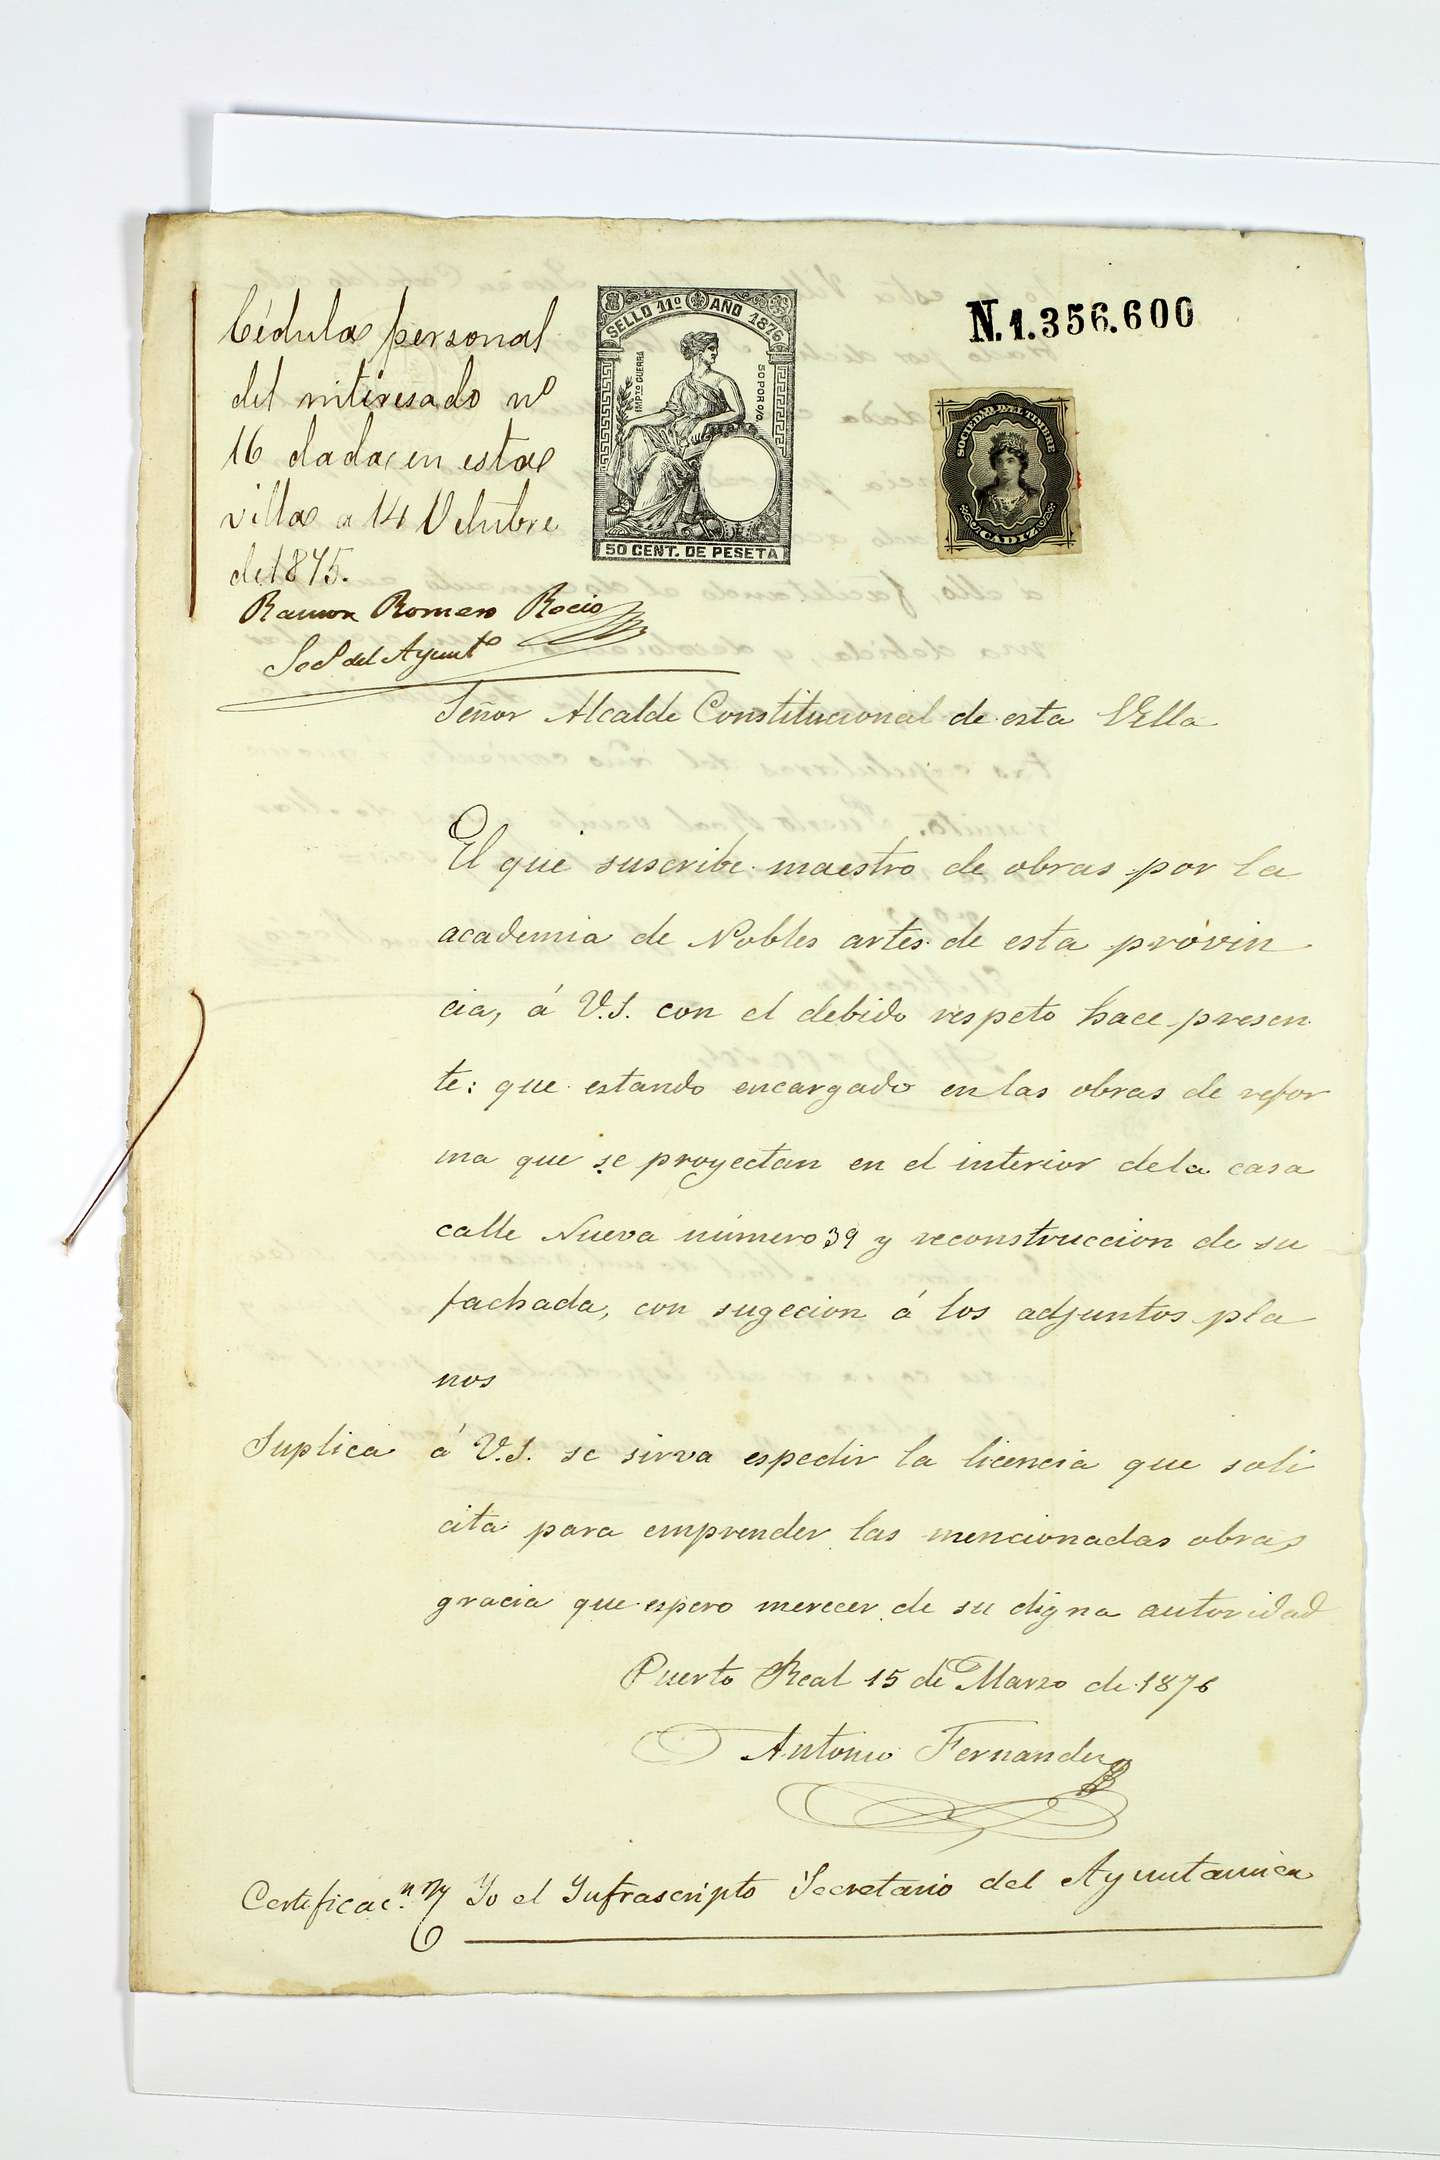 Cédula personal
del interesado nº
16 dada en esta
villa a 14 Octubre
de 1875.
Ramon Romero Rocio
Secº del Ayuntº
SELLO 11º AÑO 1876
IMPTO GUERRA
50 POR 0/0
50 CENT. DE PESETA
N.1.356.600
SOCIEDAD DEL TIMBRE
CADIZ
Señor Alcalde Constitucional de esta Villa
El que suscribe maestro de obras por la
academia de Nobles artes de esta provin
cia, á V.S. con el debido respeto hace presen
te: que estando encargado en las obras de refor
ma que se proyectan en el interior dela casa
calle Nueva número 39 y reconstruccion de su
fachada, con sugecion á los adjuntos pla
nos
Suplica á V.S. se sirva espedir la licencia que soli
cita para emprender las mencionadas obras
gracia que espero merecer de su digna autoridad
Puerto Real 15 de Marzo de 1876
Antonio Fernandez
Certificac.n Yo el Infrascripto Secretario del Ayuntamien